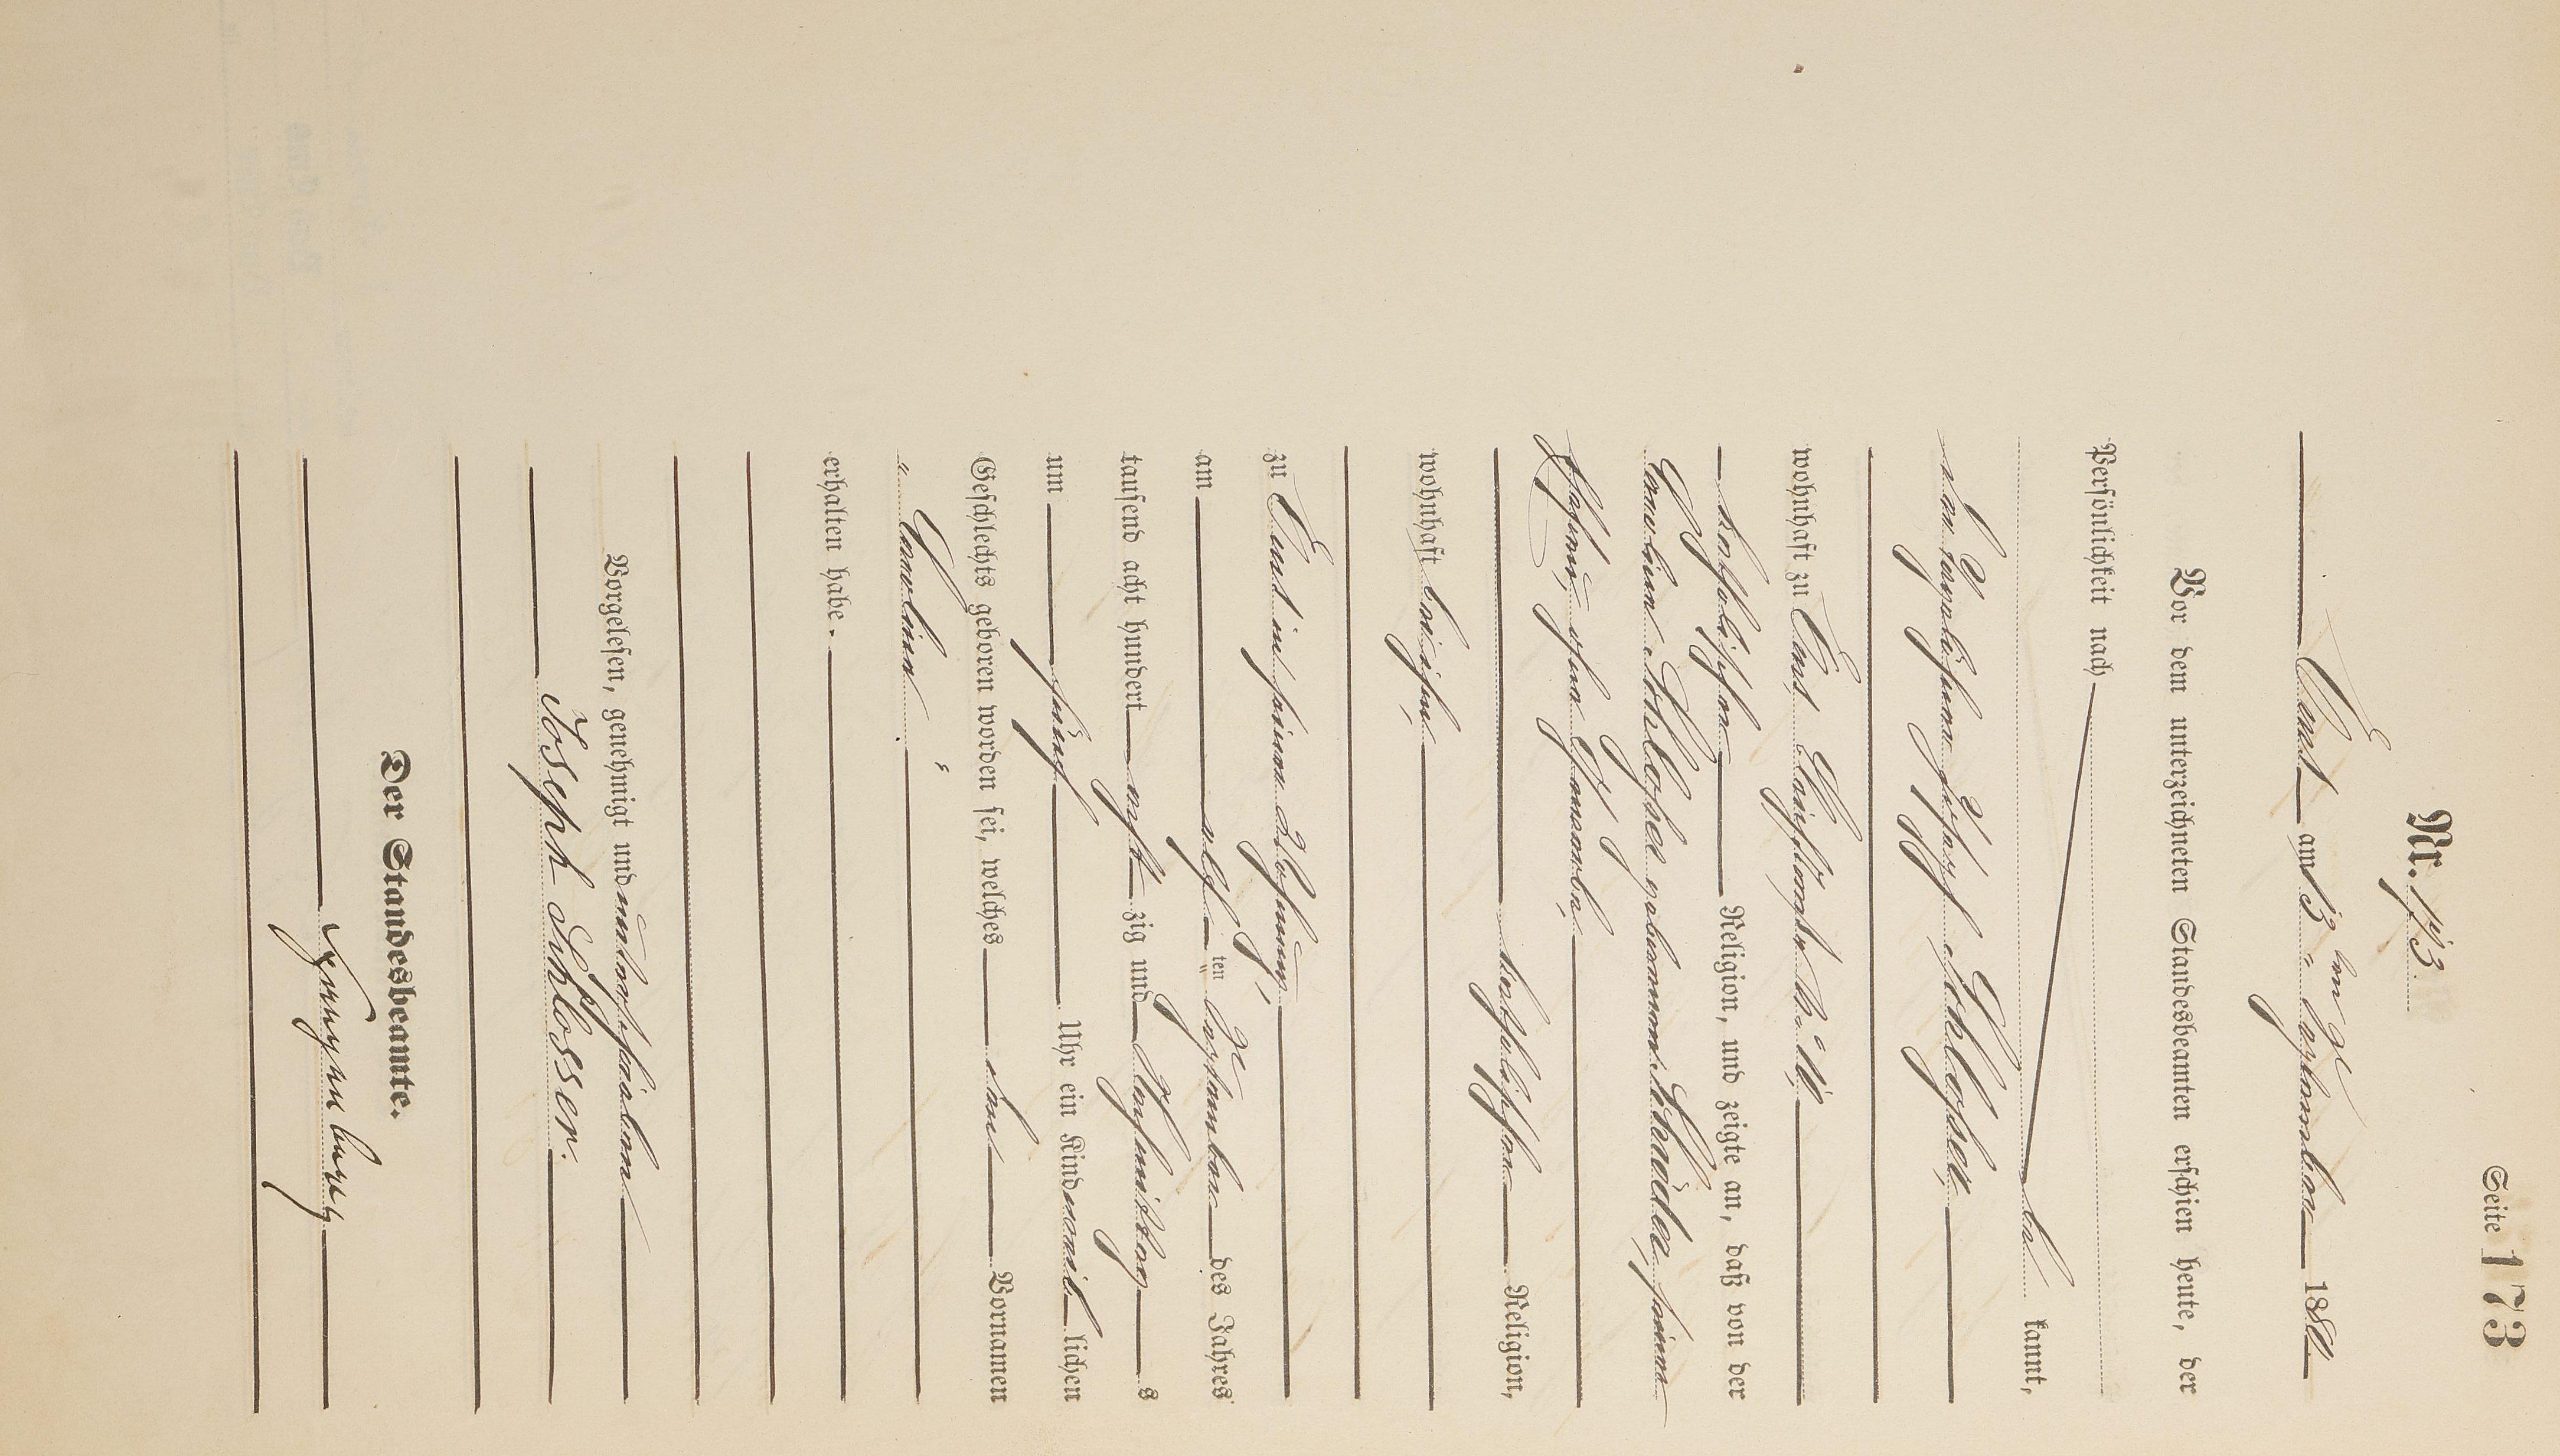 Seite 173
Nr. 173.
Ems am 13ten September 1880
Vor dem unterzeichneten Standesbeamten erschien heute, der
Persönlichkeit nach
be kannt,
der Joseph Schlosser,
wohnhaft zu Ems,
katholischer Religion, und zeigte an, daß von der
Caroline Schlosser geborenen Schaedler, seiner
Ehefrau,
katholischer Religion,
wohnhaft bei ihm,
zu Ems in seiner Wohnung,
am elf ten September des Jahres
tausend acht hundert acht zig und Nachmittags
um fünf Uhr ein Kind weib lichen
Geschlechts geboren worden sei, welches den Vornamen
"Caroline"
erhalten habe.
Vorgelesen, genehmigt und unterschrieben
Joseph Schlosser.
Der Standesbeamte.